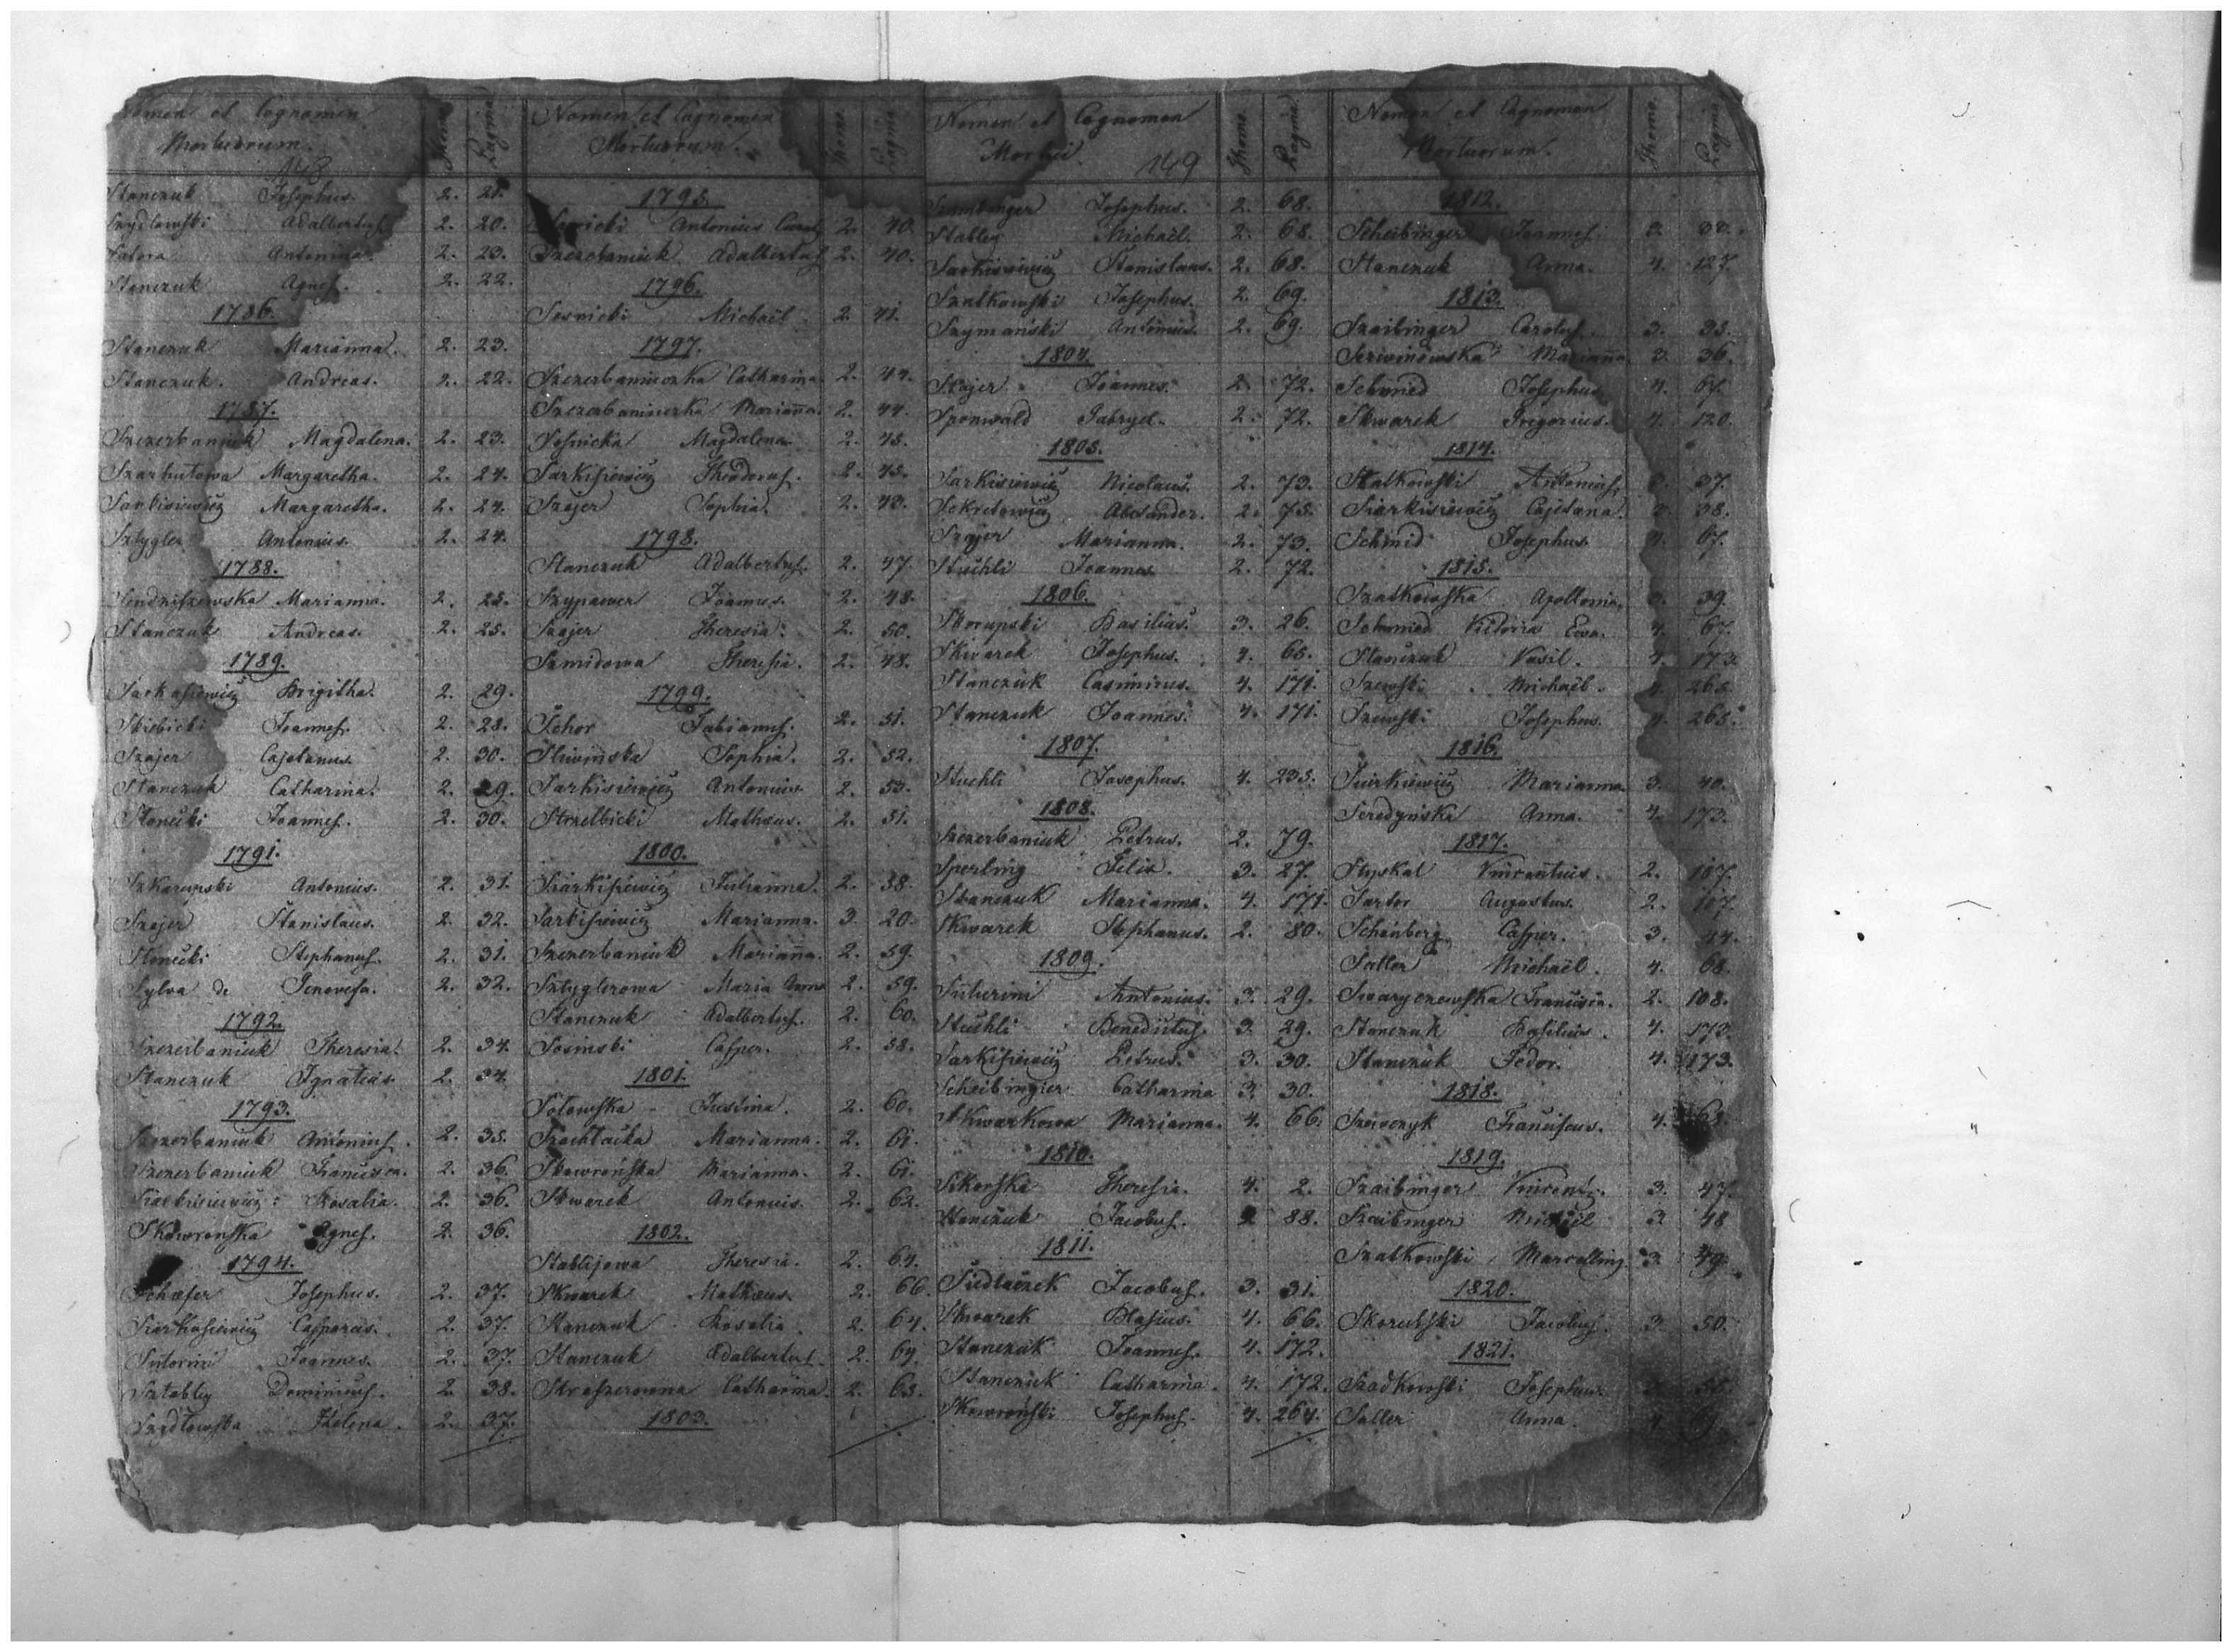 Nomen et Cognomen Mortuorum. Thomo. Pagina
148
Stanczuk Josephus. 2. 21.
Szydlowski Adalbertus. 2. 20.
Antonina. 2. 23.
Stanczuk Agnes. 2. 22.
1786.
Stanczuk Marianna. 2. 23.
Stanczuk. Andreas. 2. 22.
1787.
Szczerbaniuk Magdalena. 2. 23.
Szarhutowa Margaretha. 2. 24.
Sarkisiewicz Margaretha. 2. 24.
Sztygler Antonius. 2. 24.
1788.
Marianna. 2. 25.
Stanczuk Andreas. 2. 25.
1789.
Brigitha. 2. 29.
Skibicki Joannes. 2. 28.
Szajer Cajetanus. 2. 30.
Stanczuk Catharina. 2. 29.
Słonecki Joannes. 2. 30.
1791.
Szkarupski Antonius. 2. 31.
Szajer Stanislaus. 2. 32.
Słonecki Stephanus. 2. 31.
Sylva de Genovefa. 2. 32.
1792.
Szczerbaniuk Theresia. 2. 34.
Stanczuk Ignatius. 2. 34.
1793.
Szczerbaniuk Antonius. 2. 35.
Szczerbaniuk Francisca. 2. 36.
Siarkisiewicz Rosalia. 2. 36.
Skowronska Agnes. 2. 36.
1794.
Schaefer Josephus. 2. 37.
Siarkasiewicz Casparus. 2. 37.
Joannes. 2. 37.
Sztabley Dominicus. 2. 38.
Szydłowska Helena. 2. 37.
Nomen et Cagnomen Mortuorum. Thomo. Pagina
1795.
Antonius 2. 40.
Szczerbaniuk Adalbertus 2. 40.
1796.
Sosnicki Michaël 2. 41.
1797.
Szczerbaniuczka Catharina 2. 44.
Szczerbaniuczka Marianna. 2. 44.
Sosnicka Magdalena. 2. 45.
Sarkisiewicz Theodorus. 2. 45.
Szajer Sophia. 2. 43.
1798.
Stanczuk Adalbertus. 2. 47.
Szypawer Joannes. 2. 48.
Szajer Theresia. 2. 50.
Szmidowa Theresia. 2. 48.
1799.
Schor Fabianus. 2. 51.
Sliwinska Sophia. 2. 52.
Sarkisiewicz Antonius. 2. 53.
Strzelbicki Matheus. 2. 51.
1800.
Siarkisiewicz Julianna. 2. 58.
Sarkisiewicz Marianna. 3. 20.
Szczerbaniuk Marianna. 2. 59.
Sztyglerowa Maria Anna 2. 59.
Stanczuk Adalbertus. 2. 60.
Sosinski Casper. 2. 58.
1801.
Sołowska Justina. 2. 60.
Szachłacka Marianna. 2. 61.
Skowrońska Marianna. 2. 61.
Skwarek Antonius. 2. 62.
1802.
Stablijowa Theresia. 2. 64.
Skwarek Matheus. 2. 66.
Stanczuk Rosalia. 2. 64.
Stanczuk Adalbertus. 2. 64.
Catharina. 2. 63.
1803.
Nomen et Cognomen Mortui. Thomo. Pagina
149
Josephus. 2. 68.
Stabley Michaël. 2. 68.
Sarkisiewicz Stanislaus. 2. 68.
Szatkowski Josephus. 2. 69.
Szymański Antonius. 2. 69.
1804.
Joannes. 2. 72.
Sponwald Gabryel. 2. 72.
1805.
Sarkisiewicz Nicolaus. 2. 73.
Sekretowicz Alexander. 2. 75.
Szajer Marianna. 2. 73.
Stuchli Joannes. 2. 72.
1806.
Skorupski Basilius. 3. 26.
Skwarek Josephus. 4. 65.
Stanczuk Casimirus. 4. 171.
Stanczuk Joannes. 4. 171.
1807.
Stuchli Josephus. 4. 235.
1808.
Szczerbaniuk Petrus. 2. 79.
Sperling Felix. 3. 27.
Stanczuk Marianna. 4. 171.
Skwarek Stephanus. 2. 80.
1809.
Antonius. 3. 29.
Stuchli Benedictus. 3. 29.
Sarkisiewicz Petrus. 3. 30.
Scheibingier Catharina 3. 30.
Skwarkowa Marianna. 4. 66.
1810.
Sikorska Theresia. 4. 2.
Stanczuk Jacobus. 2 88.
1811.
Siedlaczek Jacobus. 3. 31.
Skwarek Blasius. 4. 66.
Stanczuk Joannes. 4. 172.
Stanczuk Catharina. 4. 172.
Skowroński Josephus. 4. 264.
Nomen et Cagnomen Mortuorum. Thomo. Pagina
1812.
Scheibinger Joannes. 3.
Stanczuk Anna. 4. 127.
1813.
Szaibinger Carolus. 3. 35.
Marianna 3. 36.
Schmied Josephus 4. 67.
Skwarek Gregorius. 4. 120.
1814.
Antonius. 37.
Siarkisiewicz Cajetana. 38.
Schmid Josephus. 4. 67.
1815.
Szatkowska Apollonia. 3. 39.
Schmied Victoria Eva. 4. 67.
Stanczuk Vasil. 4. 173.
Szewski Michaël. 4. 265.
Szewski Josephus. 4. 265.
1816.
Marianna. 3. 40.
Seredyńska Anna. 4. 173.
1817.
Styskal Vincentius. 2. 107.
Sartor Augustus. 2. 107.
Schönberg Casper. 3. 44.
Saller Michaël. 4. 68.
Swaryczewska Francisca. 2. 108.
Stanczuk Basilius. 4. 173.
Stanczuk Fedor. 4. 173.
1818.
Szewczyk Franciscus. 4. 68.
1819.
Szaibinger Vincent. 3. 47.
Szaibinger Michael 3. 48
Szatkowski Marcellinus 3. 49.
1820.
Jacobus. 3. 50.
1821.
Szadkowski Josephus.
Saller Anna.